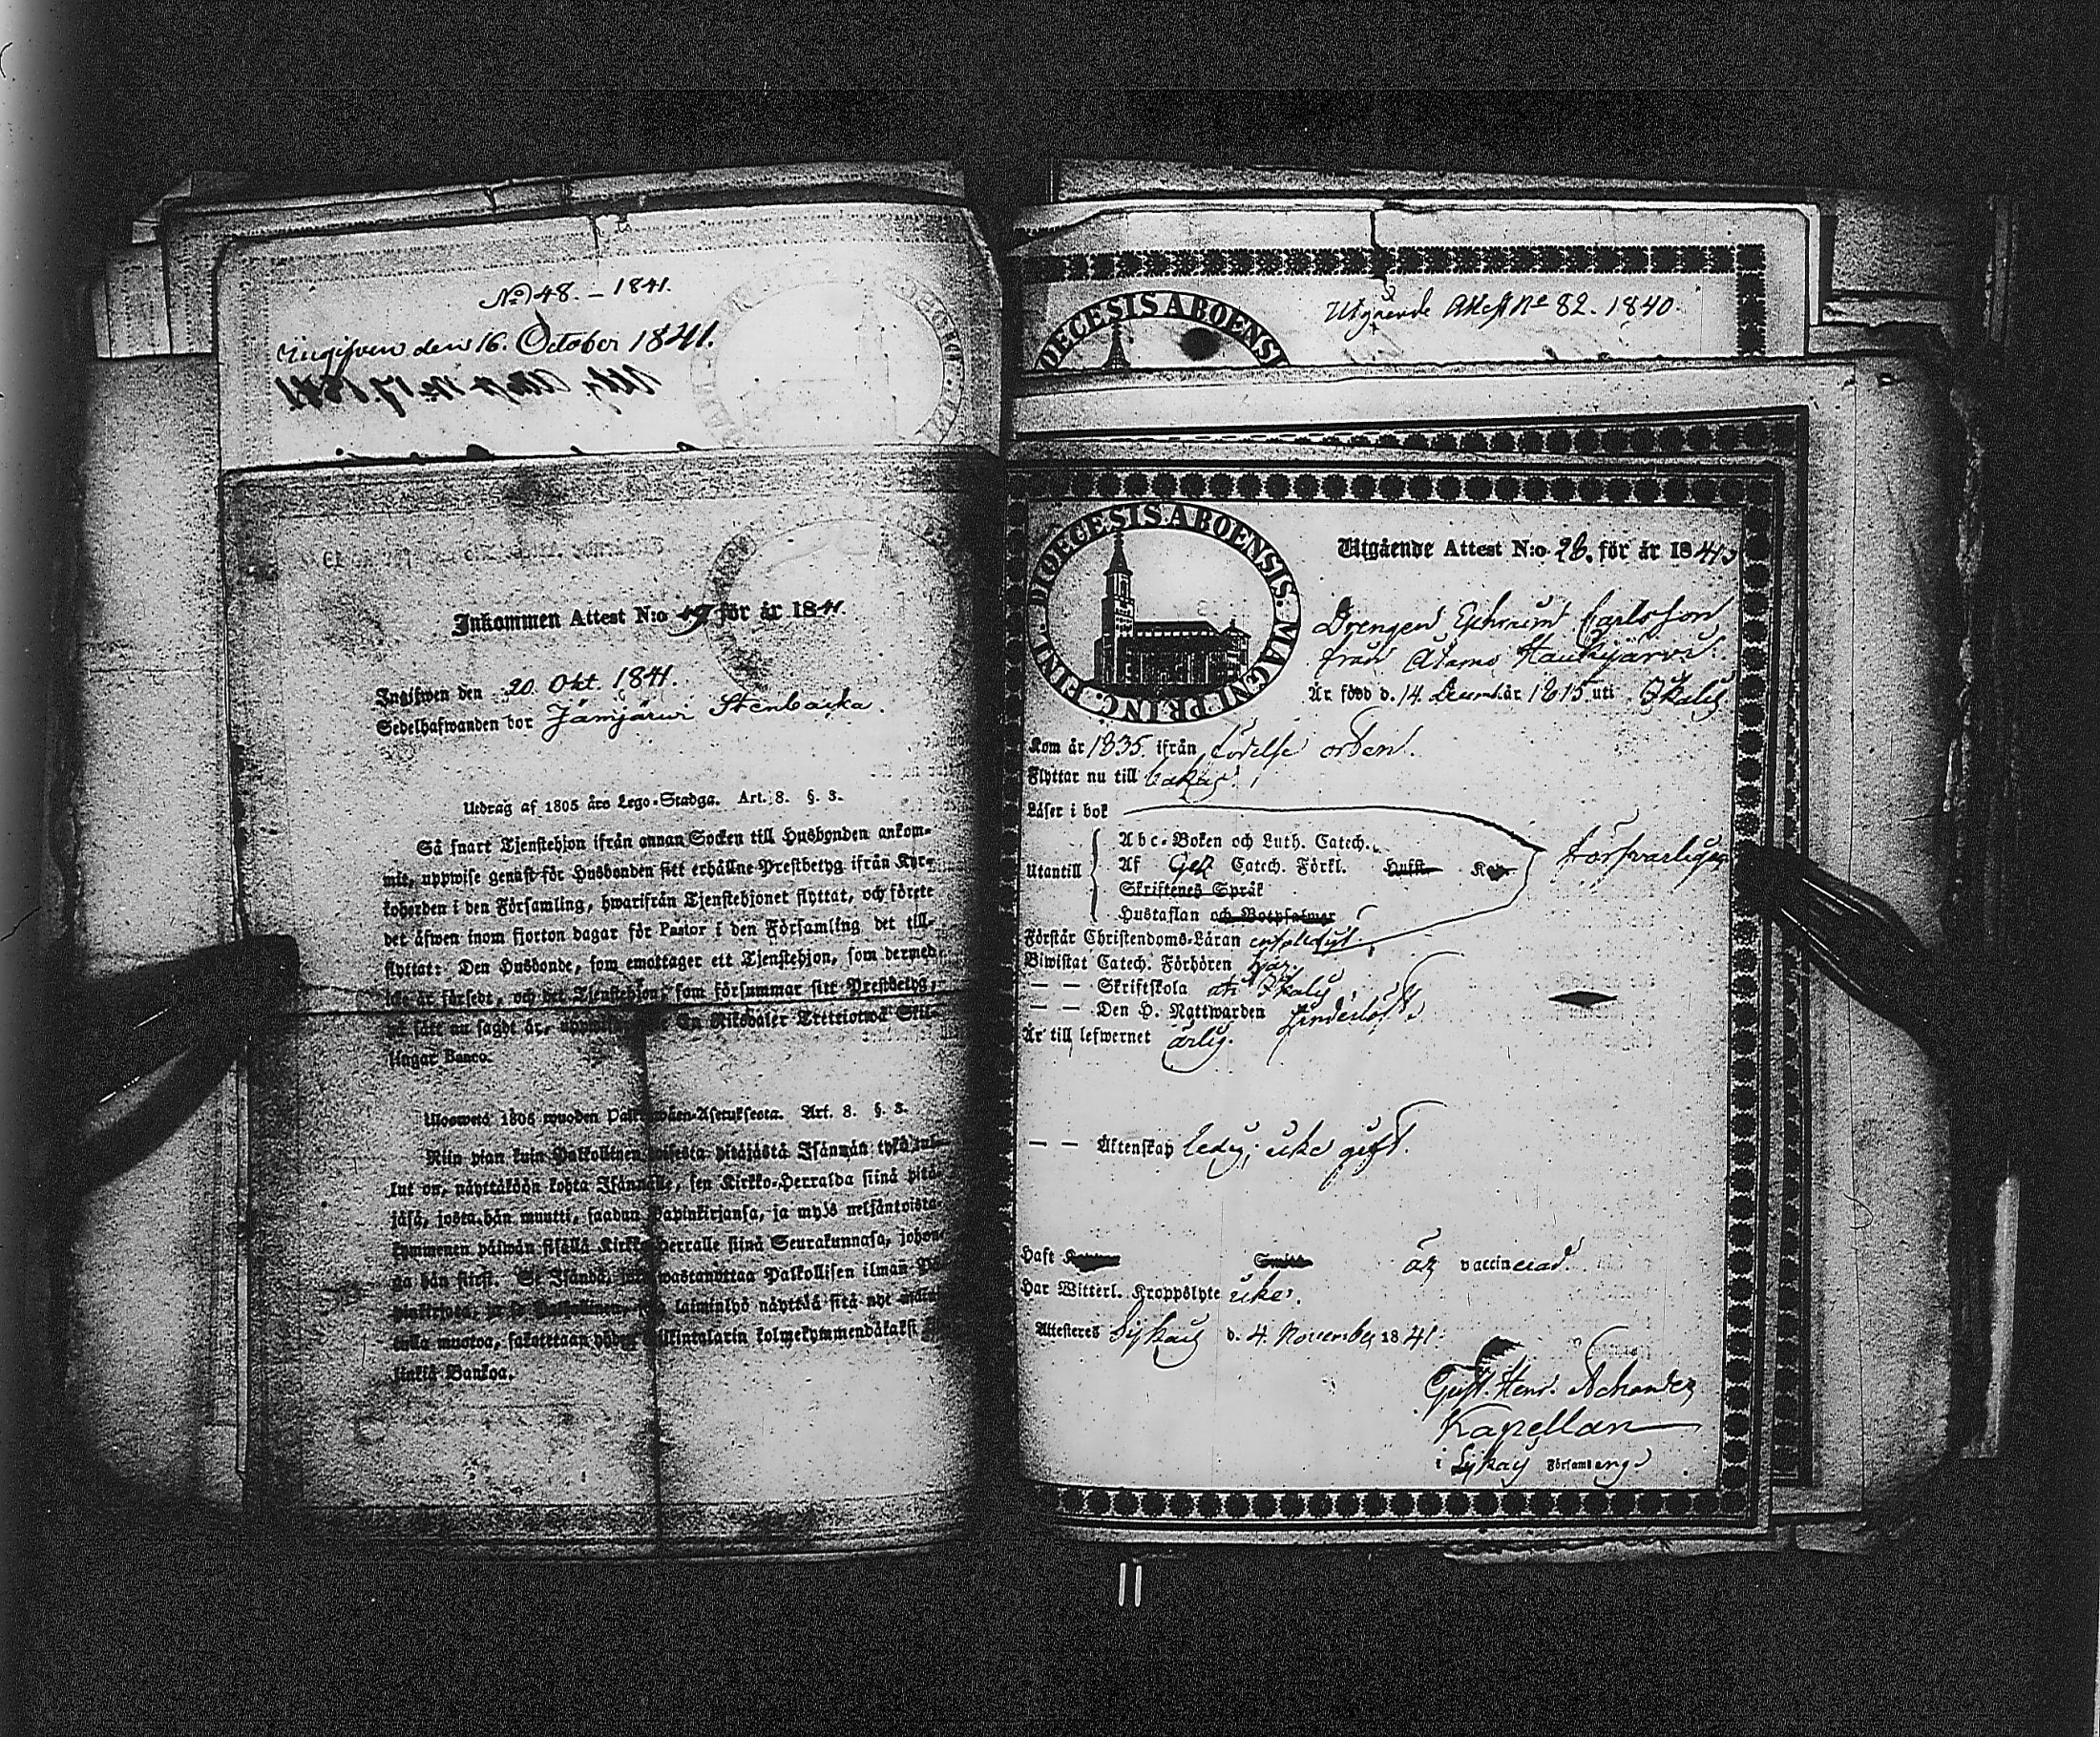 No 48. – 1841.
Ingifven den 16. October 1841.
Inkommen Attest N:o 49 för år 1841.
Ingifwen den 20. Okt. 1841.
Sedelhafwanden bor Jämjärwi Stenbacka.
Utdrag af 1805 års Lego-Stadga. Art. 8. §. 3.
Så snart Tjenstehjon ifrån annan Socken till Husbonden ankom-
mit, uppwise genast för Husbonden sitt erhållne Prestbetyg ifrån Kyr-
koherden i den Församling, hwarifrån Tjenstehjonet flyttat, och förete
det äfwen inom fjorton dagar för Pastor i den Församling det till-
flyttat: Den Husbonde, som emottager ett Tjenstehjon, som dermed
icke är försedt, och det Tjenstehjon, som försummar sitt Prestbetyg,
på sätt nu sagdt är, En Riksdaler Trettiotwå Skil-
lingar Banco.
Uloswetö 1805 wuoden Palkowäen-Asetuksesta. Art. 8. §. 3.
Niin pian kuin Palkollinen toisesta pitäjästä Isännän tykö tul-
lut on, näyttäköön kohta Isännälle, sen Kirkko-Herralda siinä pitä-
jäsä, josta hän muutti, saadun Papinkirjansa, ja myös neljäntoista-
kymmenen päiwän sisällä Kirkko-Herralle siinä Seurakunnasa, johon-
ga hän siirsi. Se Isändä, joka wastanottaa Palkollisen ilman Pa-
pinkirjata, ja se Palkollinen, joka laiminlyö näyttää sitä nyt
tulla muotoa, sakotetaan yhden Rikintalarin kolmekymmendäkaksi
linkiä Bankoa.
Utgående Attest No 82. 1840.
DIOECESIS ABOENSI
DIOECESIS ABOENSIS. MAGNI PRINC. FINL.
Utgående Attest N:o 26. för år 1841
Drengen Ephraim Carlsson
från Adams Haukijärvi.
Är född d. 14. Decemb. år 1815 uti Ikalis
Kom år 1835. ifrån födelse orten.
Flyttar nu till bakas.
Läser i bok
Utantill
Abc-Boken och Luth. Catech.
Af Gez Catech. Förkl.
Skriftenes Språk
Hustaflan och Botpsalmer
försvarligen
Förstår Christendoms-Läran
Biwistat Catech. Förhören här.
— — Skriftskola uti Ikalis
— — Den H. Nattwarden
Är till lefwernet ärlig.
— — Äktenskap ledig; icke gift.
Haft är vaccinerad.
Har Witterl. Kroppslyte icke.
Attesteres d. 4. November 1841.
Gust. Henr.
Kapellan
i Församling